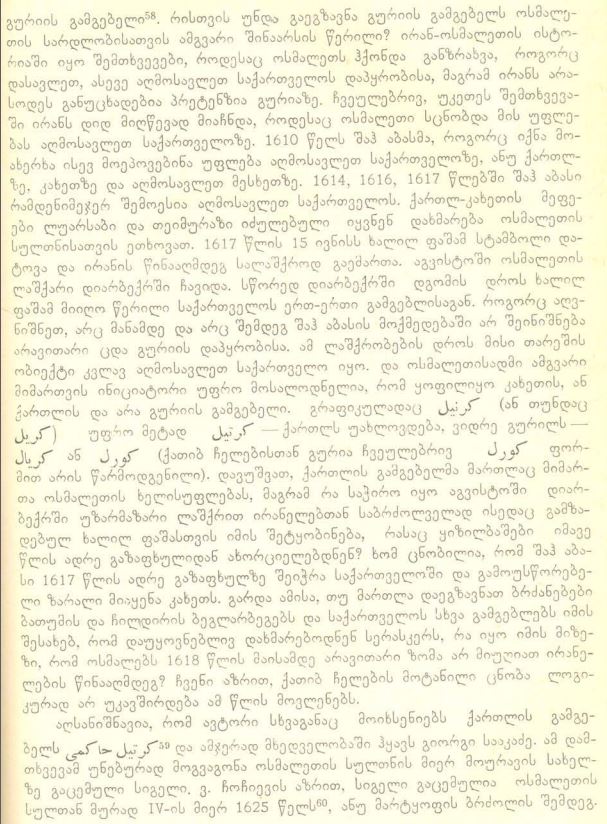 გურიის გამგებელი⁵⁸. რისთვის უნდა გაეგზავნა გურიის გამგებელს ოსმალე-
თის სარდლობისათვის ამგვარი შინაარსის წერილი? ირან-ოსმალეთის ისტო-
რიაში იყო შემთხვევები, როდესაც ოსმალეთს ჰქონდა განზრახვა, როგორც
დასავლეთ, ასევე აღმოსავლეთ საქართველოს დაპყრობისა, მაგრამ ირანს არა-
სოდეს განუცხადებია პრეტენზია გურიაზე. ჩვეულებრივ, უკეთეს შემთხვევა-
ში ირანს დიდ მიღწევად მიაჩნდა, როდესაც ოსმალეთი სცნობდა მის უფლე-
ბას აღმოსავლეთ საქართველოზე. 1610 წელს შაჰ აბასმა, როგორც იქნა მო-
ახერხა ისევ მოეპოვებინა უფლება აღმოსავლეთ საქართველოზე, ანუ ქართლ-
ზე, კახეთზე და აღმოსავლეთ მესხეთზე. 1614, 1616, 1617 წლებში შაჰ აბასი
რამდენიმეჯერ შემოესია აღმოსავლეთ საქართველოს. ქართლ-კახეთის მეფე-
ები ლუარსაბი და თეიმურაზი იძულებული იყვნენ დახმარება ოსმალეთის
სულთნისათვის ეთხოვათ. 1617 წლის 15 ივნისს ხალილ ფაშამ სტამბოლი და-
ტოვა და ირანის წინააღმდეგ სალაშქროდ გაემართა. აგვისტოში ოსმალეთის
ლაშქარი დიარბექრში ჩავიდა. სწორედ დიარბექრში დგომის დროს ხალილ
ფაშამ მიიღო წერილი საქართველოს ერთ-ერთი გამგებლისაგან. როგორც აღვ-
ნიშნეთ, არც მანამდე და არც შემდეგ შაჰ აბასის მოქმედებაში არ შეინიშნება
არავითარი ცდა გურიის დაპყრობისა. ამ ლაშქრობების დროს მისი თარეშის
ობიექტი კვლავ აღმოსავლეთ საქართველო იყო. და ოსმალეთისადმი ამგვარი
მიმართვის ინიციატორი უფრო მოსალოდნელია, რომ ყოფილიყო კახეთის, ან
ქართლის და არა გურიის გამგებელი. გრაფიკულადაც كرنيل (ან თუნდაც
كريل) უფრო მეტად كرتيل — ქართლს უახლოვდება, ვიდრე გურილს —
كريال ან كورل (ქათიბ ჩელებისთან გურია ჩვეულებრივ كورل ფორ-
მით არის წარმოდგენილი). დავუშვათ, ქართლის გამგებელმა მართლაც მიმარ-
თა ოსმალეთის ხელისუფლებას, მაგრამ რა საჭირო იყო აგვისტოში დიარ-
ბექრში უზარმაზარი ლაშქრით ირანელებთან საბრძოლველად ისედაც გამზა-
დებულ ხალილ ფაშასთვის იმის შეტყობინება, რასაც ყიზილბაშები იმავე
წლის ადრე გაზაფხულიდან ახორციელებდნენ? ხომ ცნობილია, რომ შაჰ აბა-
სი 1617 წლის ადრე გაზაფხულზე შეიჭრა საქართველოში და გამოუსწორებე-
ლი ზარალი მიაყენა კახეთს. გარდა ამისა, თუ მართლა დაეგზავნათ ბრძანებები
ბათუმის და ჩილდირის ბეგლარბეგებს და საქართველოს სხვა გამგებლებს იმის
შესახებ, რომ დაუყოვნებლივ დახმარებოდნენ სერასკერს, რა იყო იმის მიზე-
ზი, რომ ოსმალებს 1618 წლის მაისამდე არავითარი ზომა არ მიუღიათ ირანე-
ლების წინააღმდეგ? ჩვენი აზრით, ქათიბ ჩელების მოტანილი ცნობა ლოგი-
კურად არ უკავშირდება ამ წლის მოვლენებს.
აღსანიშნავია, რომ ავტორი სხვაგანაც მოიხსენიებს ქართლის გამგე-
ბელს كرتيل حاكمى⁵⁹ და ამჯერად მხედველობაში ჰყავს გიორგი სააკაძე. ამ დამ-
თხვევამ უნებურად მოგვაგონა ოსმალეთის სულთნის მიერ მოურავის სახელ-
ზე გაცემული სიგელი. ვ. ჩოჩიევის აზრით, სიგელი გაცემულია ოსმალეთის
სულთან მურად IV-ის მიერ 1625 წელს⁶⁰, ანუ მარტყოფის ბრძოლის შემდეგ.